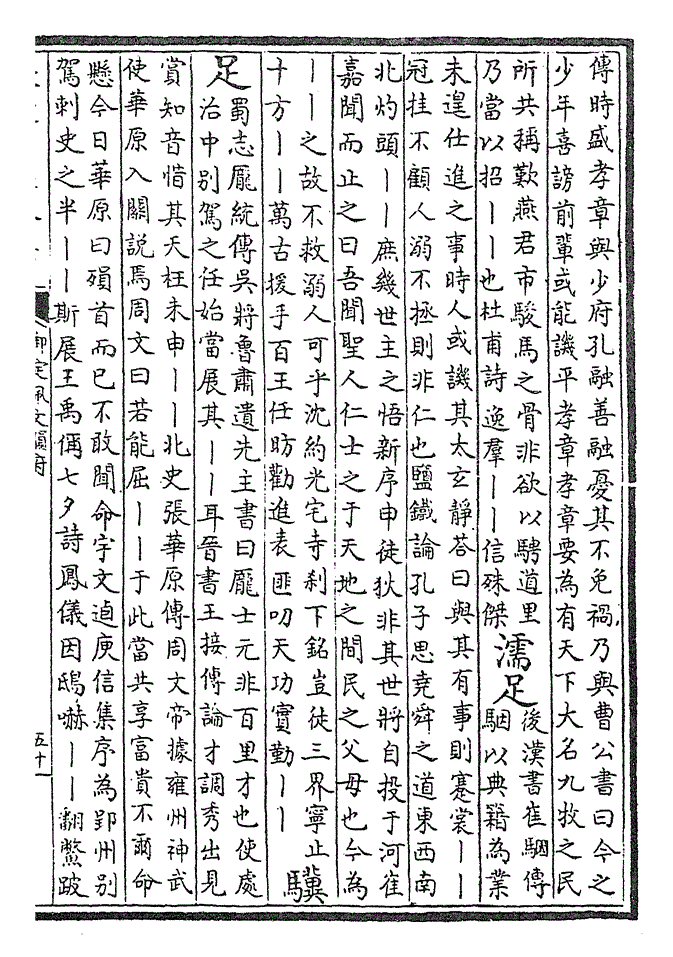 傳時盛孝章與少府孔融善融憂其不免禍乃與曹公書曰今之
少年喜謗前輩或能譏平孝章孝章要為有天下大名九牧之民
所共稱歎燕君市駿馬之骨非欲以騁道里
乃當以招丨丨也杜甫詩逸羣丨丨信殊傑
濡足
後漢書崔駰傳
駰以典籍為業
未遑仕進之事時人或譏其太玄靜答曰與其有事則褰裳丨丨
冠挂不顧人溺不拯則非仁也鹽鐵論孔子思堯舜之道東西南
北灼頭丨丨庶幾世主之悟新序申徒狄非其世將自投于河崔
嘉聞而止之曰吾聞聖人仁士之于天地之間民之父母也今為
丨丨之故不救溺人可乎沈約光宅寺刹下銘豈徒三界寧止
十方丨丨萬古援手百王任昉勸進表匪叨天功實勤丨丨
驥
足
蜀志龐統傳吳將魯肅遺先主書曰龐士元非百里才也使處
治中別駕之任始當展其丨丨耳晉書王接傳論才調秀出見
賞知音惜其夭枉未申丨丨北史張華原傳周文帝據雍州神武
使華原入關說焉周文曰若能屈丨丨于此當共享富貴不爾命
懸今日華原曰殞首而已不敢聞命宇文逌庾信集序為郢州別
駕刺史之半丨丨斯展王禹偁七夕詩鳳儀因鴟嚇丨丨翻鱉跛
御定佩文韻府
五十一